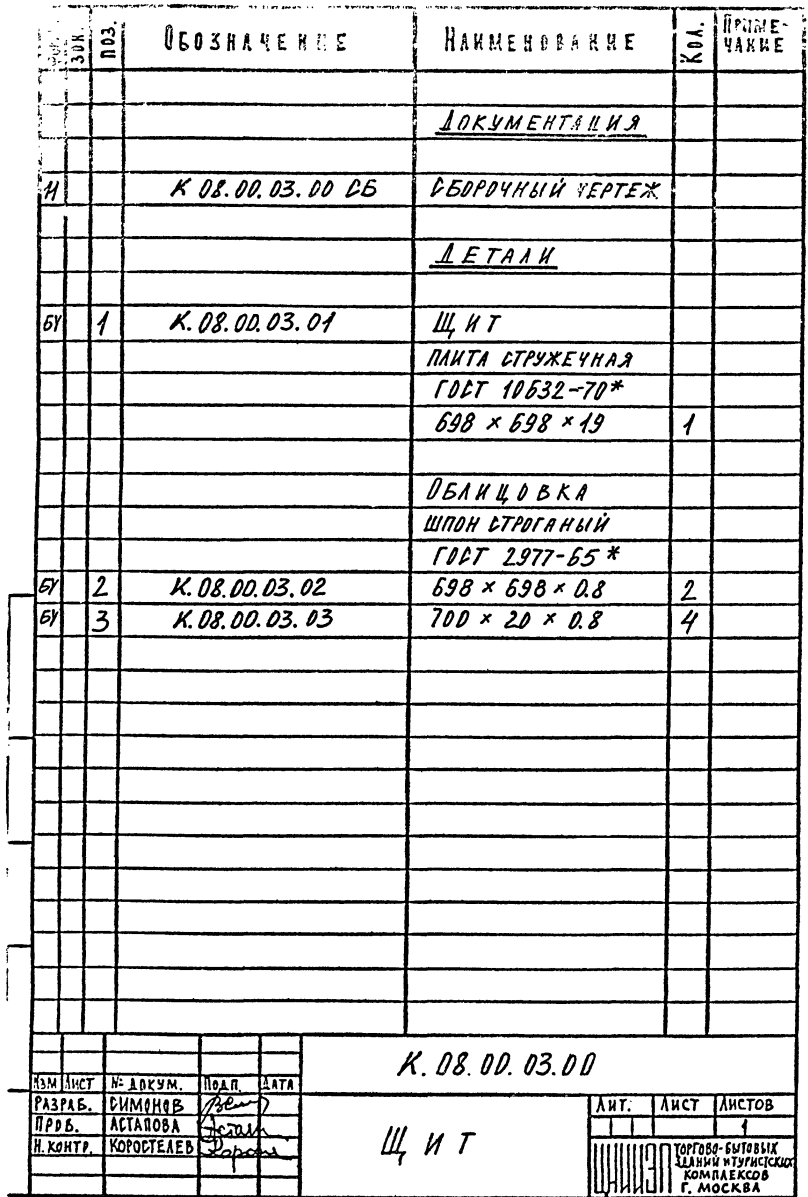 ЗОН. ПОЗ. ОБОЗНАЧЕНИЕ НАИМЕНОВАНИЕ КОЛ. ПРИМЕ-
ЧАНИЕ
ДОКУМЕНТАЦИЯ
И К 08.00.03.00 СБ СБОРОЧНЫЙ ЧЕРТЕЖ
ДЕТАЛИ
БЧ 1 К.08.00.03.01 ЩИТ
ПЛИТА СТРУЖЕЧНАЯ
ГОСТ 10632-70*
698 × 698 × 19 1
ОБЛИЦОВКА
ШПОН СТРОГАНЫЙ
ГОСТ 2977-65*
БЧ 2 К.08.00.03.02 698 × 698 × 0.8 2
БЧ 3 К.08.00.03.03 700 × 20 × 0.8 4
К.08.00.03.00
ИЗМ ЛИСТ № ДОКУМ. ПОДП. ДАТА
РАЗРАБ. СИМОНОВ
ПРОВ. АСТАПОВА
Н.КОНТР. КОРОСТЕЛЕВ
ЩИТ
ЛИТ. ЛИСТ ЛИСТОВ
1
ЦНИИЭП ТОРГОВО-БЫТОВЫХ
ЗДАНИЙ И ТУРИСТСКИХ
КОМПЛЕКСОВ
Г. МОСКВА